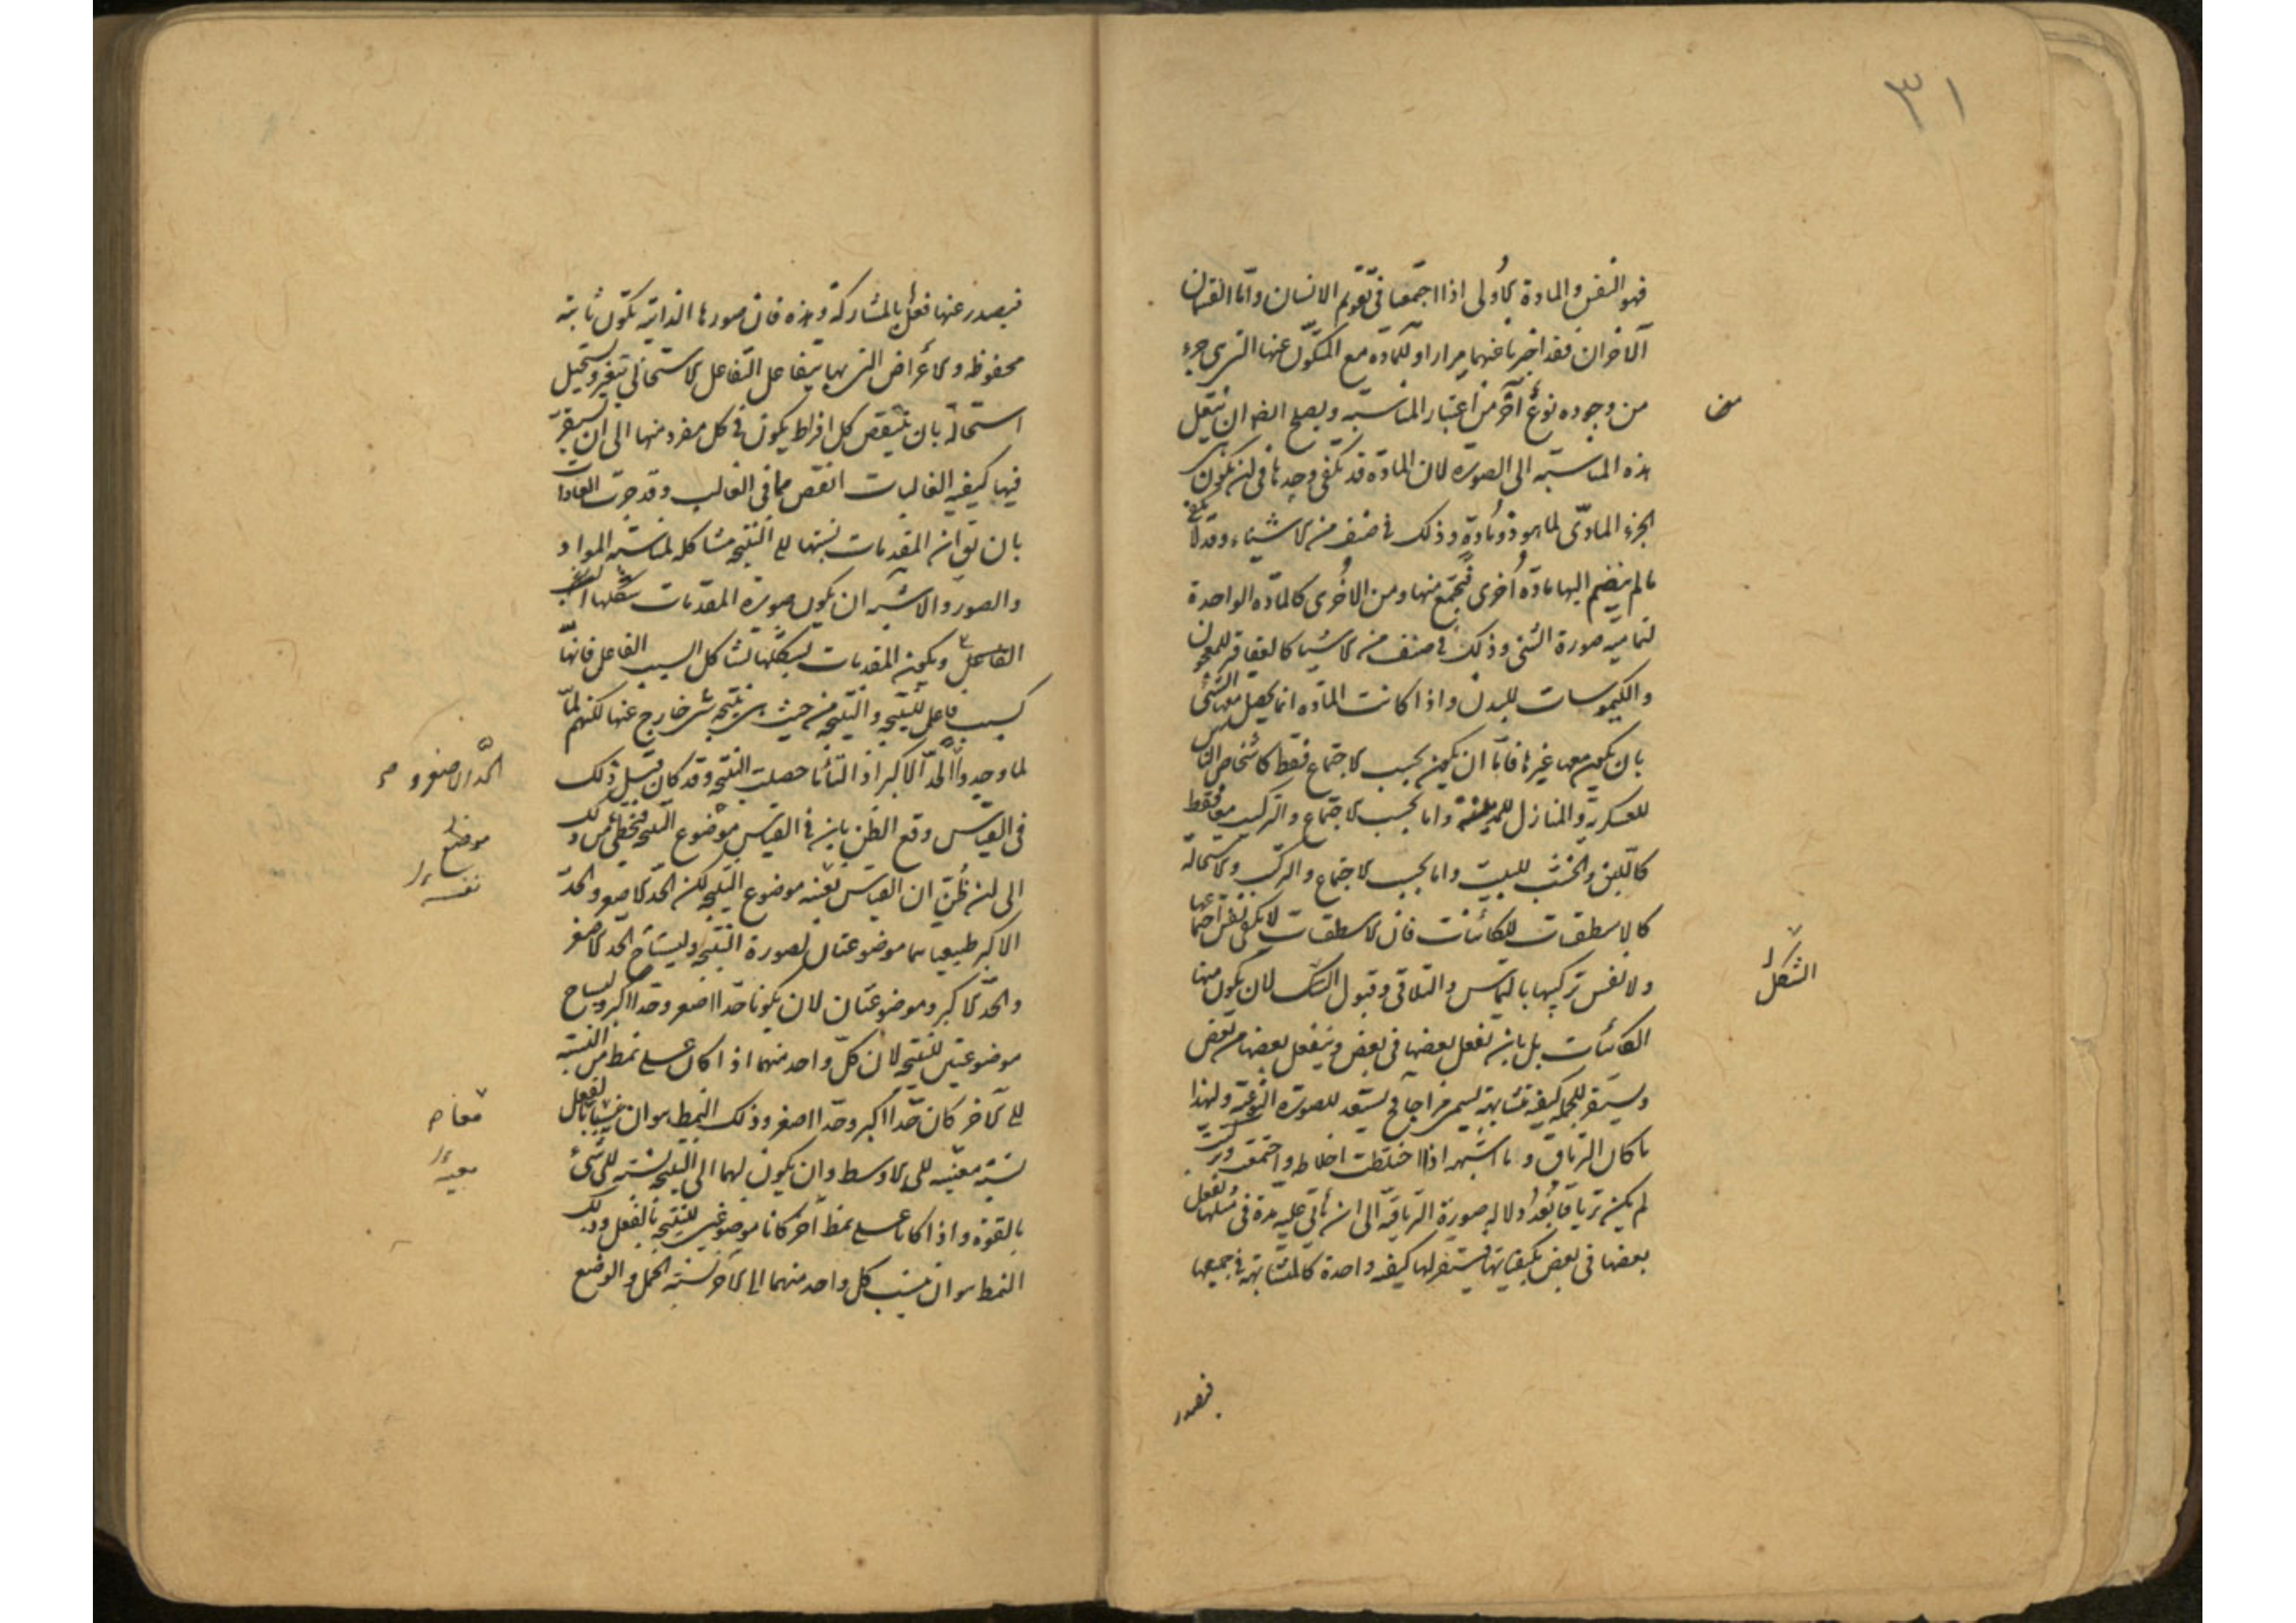 ٣١
فهو النفس والمادة الاولى اذا اجتمعا فى تقويم الانسان واما القسمان
الآخران فقد اخبرنا عنهما مرارا وللمادة مع المتكوّن عنها التى هى جزء
من وجوده نوع آخر من اعتبار المناسبة ويصلح ايضا ان ينتقل
هذه المناسبة الى الصورة لان المادة قد تكفى وحدها فى ان تكون هى
الجزء المادّى لما هو ذو مادة وذلك فى صنف من الاشياء وقد لا تكفى
ما لم ينضم اليها مادة اُخرى فتجتمع منها ومن الاُخرى كالمادة الواحدة
لتمامية صورة الشئ وذلك فى صنف من الاشيا كالعقاقير للمعجون
والكيموسات للبدن واذا كانت المادة انما يحصل منها الشئ
بان يكون معها غيرها فاما ان يكون بحسب الاجتماع فقط كاشخاص الناس
للعسكرية والمنازل للمدينة واما بحسب الاجتماع والتركيب معا فقط
كاللبن والخشب للبيت واما بحسب الاجتماع والتركيب والاستحالة
كالاسطقسات للكائنات فان الاسطقسات لا يكفى نفس اجتماعها
ولا نفس تركيبها بالتماس والتلاقى وقبول الشكل لان يكون منها
الكائنات بل بان يفعل بعضها فى بعض وينفعل بعضها من بعض
ويستقر للجملة كيفية متشابهة تسمى مزاجا فح يستعد للصورة النوعية ولهذا
ما كان الترياق وما اشبهه اذا اختلطت اخلاطه واجتمعت وتركبت
لم يكن ترياقا بعدُ ولا له صورة الترياقية الى ان ياتى عليه مدة فى مثلها يفعل
بعضها فى بعض بكيفياتها فيستقر لها كيفية واحدة كالمتشابهة فى جميعها
الشكل
فيصدر
فيصدر عنها فعل بالمشاركة وهذه فان صورها الذاتية تكون ثابتة
محفوظة والاعراض التى بها يتفاعل التفاعل الاستحالى تتغير وتستحيل
استحالة بان ينتقص كل افراط يكون فى كل مفرد منها الى ان يستقر
فيها كيفية الغالبات انقص مما فى الغالب وقد جرت العادات
بان يق ان المقدمات نسبتها الى النتيجة مشاكلة لمناسبة المواد
والصور والاشبه ان يكون صورة المقدمات شكلها
الفاعل ويكون المقدمات بشكلها تشاكل السبب الفاعل فانها
كسبب فاعل للنتيجة والنتيجة من حيث هى نتيجة شئ خارج عنها لكنهم لما
لما وجدوا الحدّ الاكبر اذا التأما حصلت النتيجة وقد كان قبل ذلك
فى القياس وقع الظن بان فى القياس موضوع النتيجة فتخطى من ذلك
الى ان ظُنّ ان القياس نفسه موضوع النتيجة لكن الحد الاصغر والحدّ
الاكبر طبيعياهما موضوعتان لصورة النتيجة وليستا ح الحد الاصغر
والحدّ الاكبر وموضوعتان لان يكونا حدا اصغر وحدا اكبر وليسا ح
موضوعتين للنتيجة لان كلّ واحد منهما اذا كان على نمط من النسبة
الى الآخر كان حدّا اكبر وحدّا اصغر وذلك النمط هو ان ينسبا بالفعل
نسبة معيّنة الى الاوسط وان يكون لهما الى النتيجة نسبة الى شئ
بالقوة واذا كانا على نمط آخر كانا موضوعين للنتيجة بالفعل وذلك
النمط هو ان ينسب كل واحد منهما الى الآخر نسبة الحمل والوضع
الحدّ الاصغر و صح
موضع
نفسه
معا صح
معينة